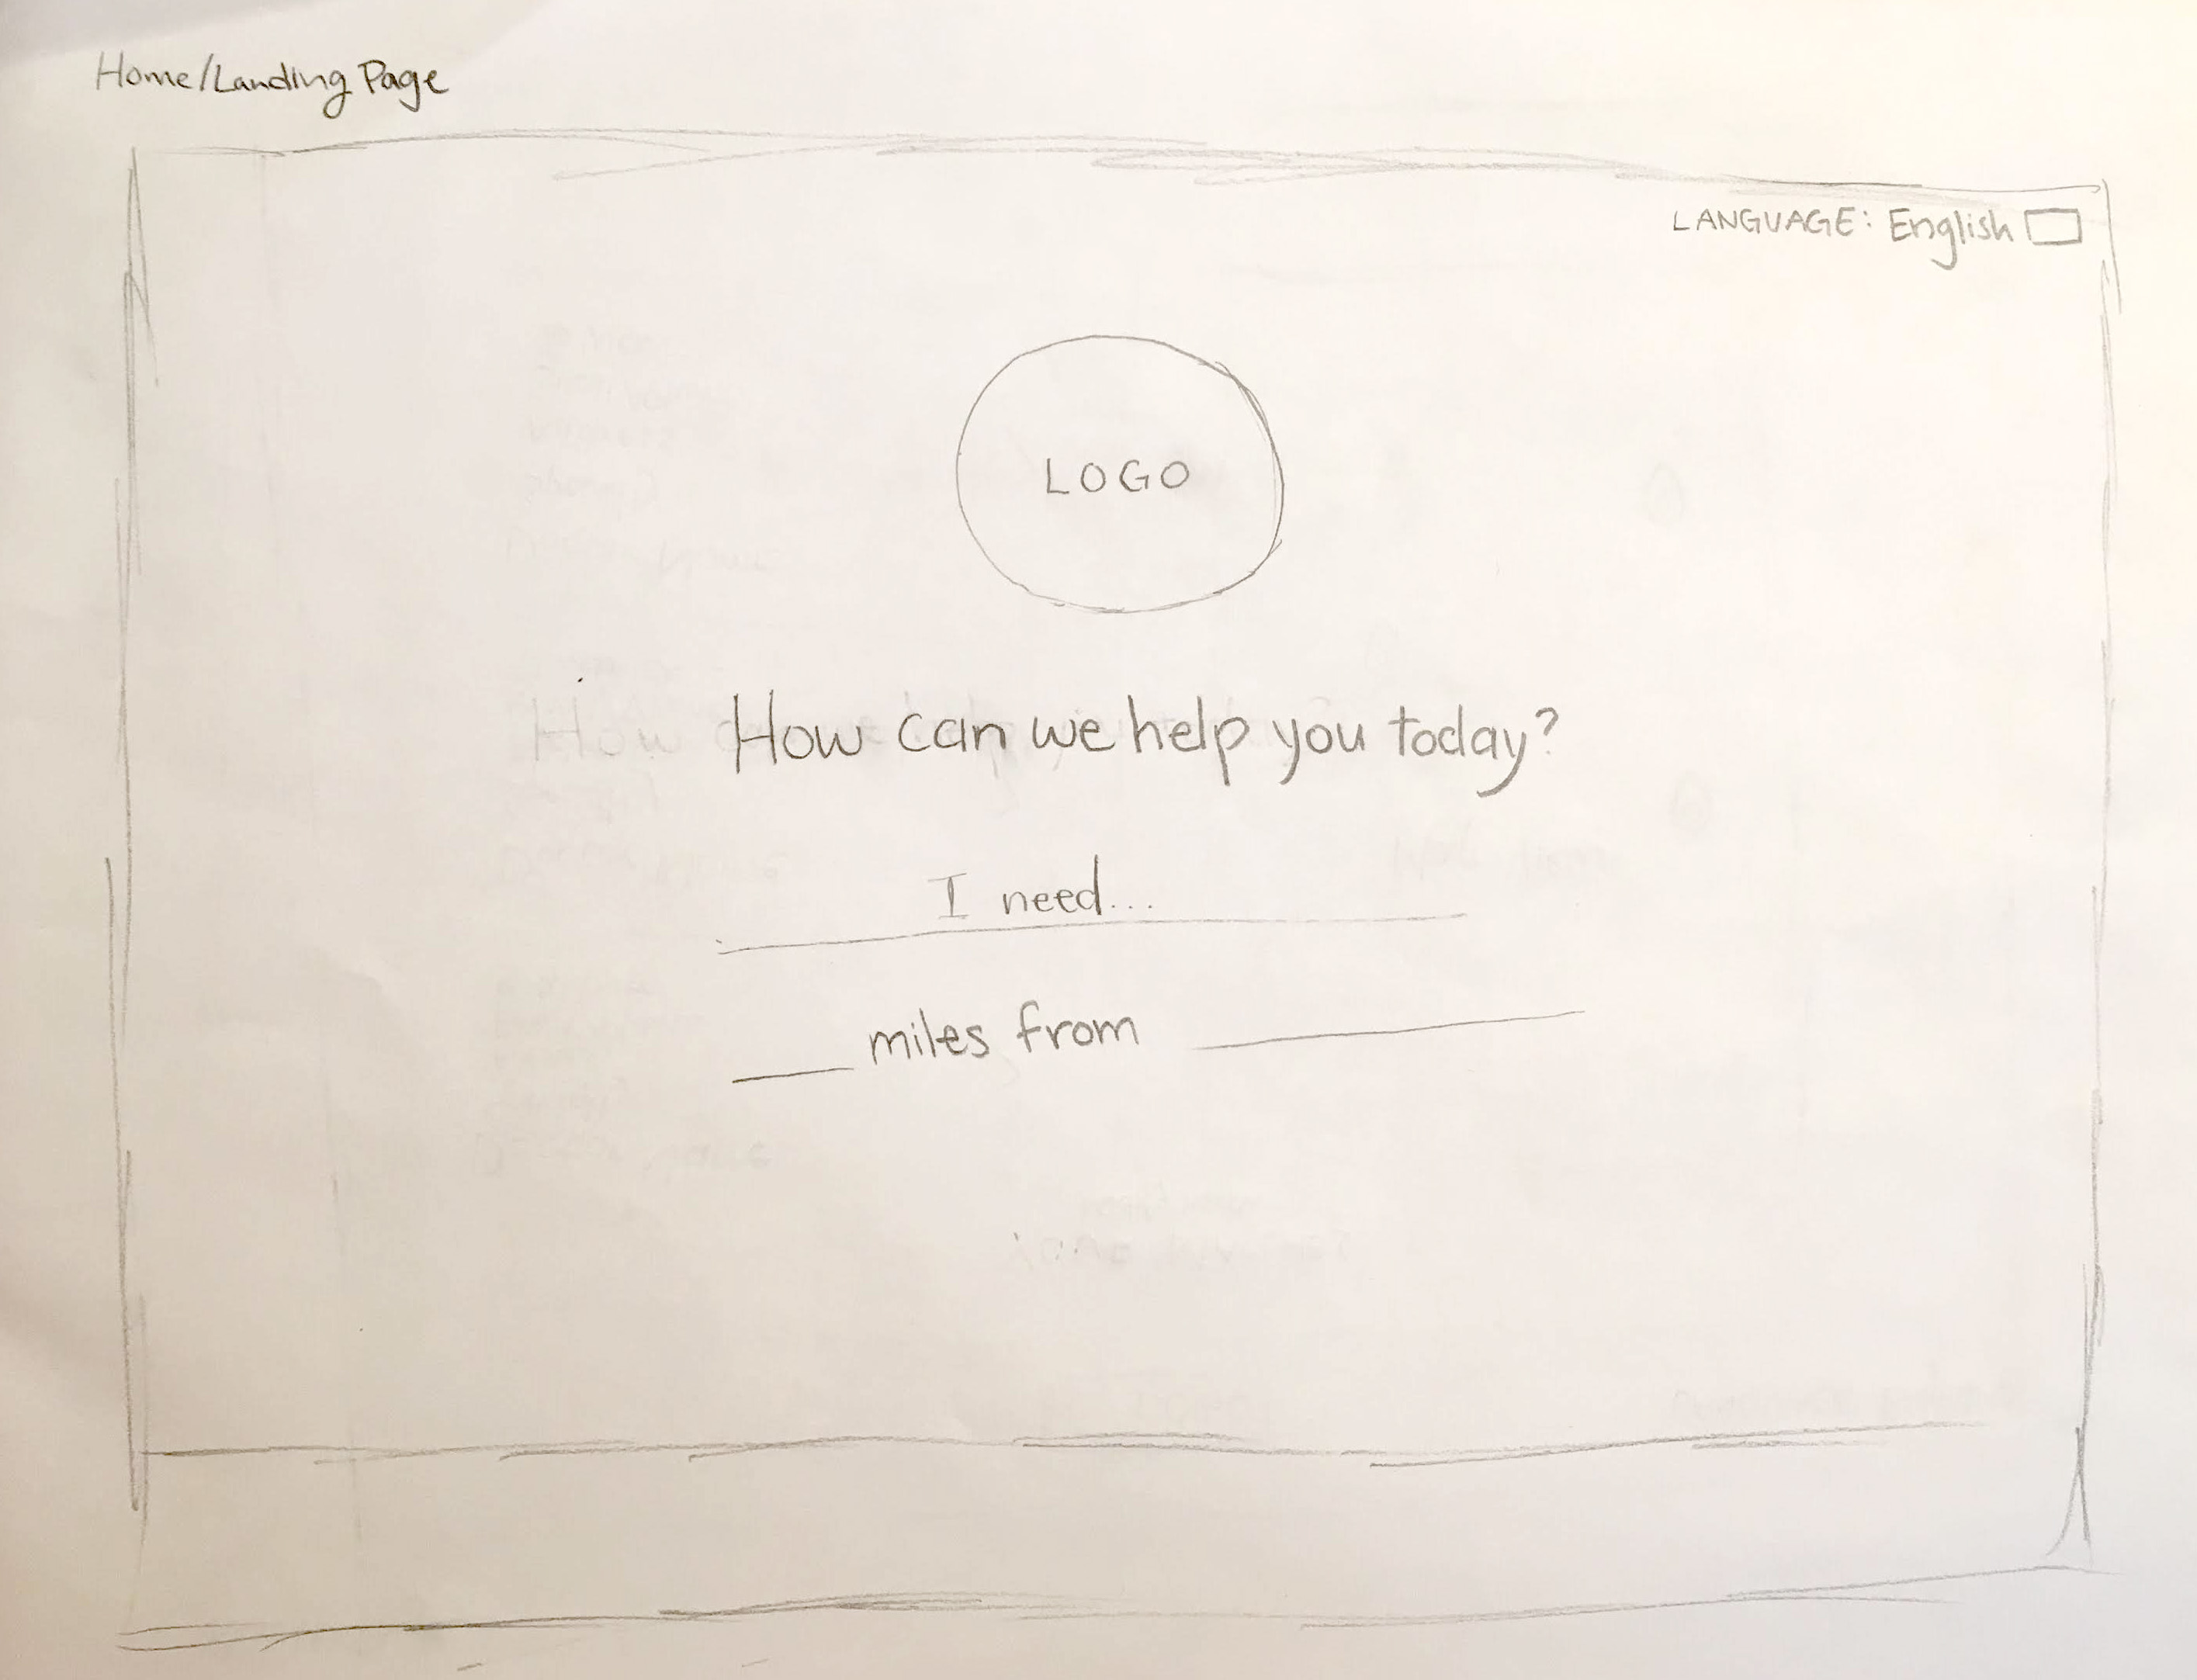 Home/Landing Page
LANGUAGE: English
LOGO
How can we help you today?
I need...
miles from